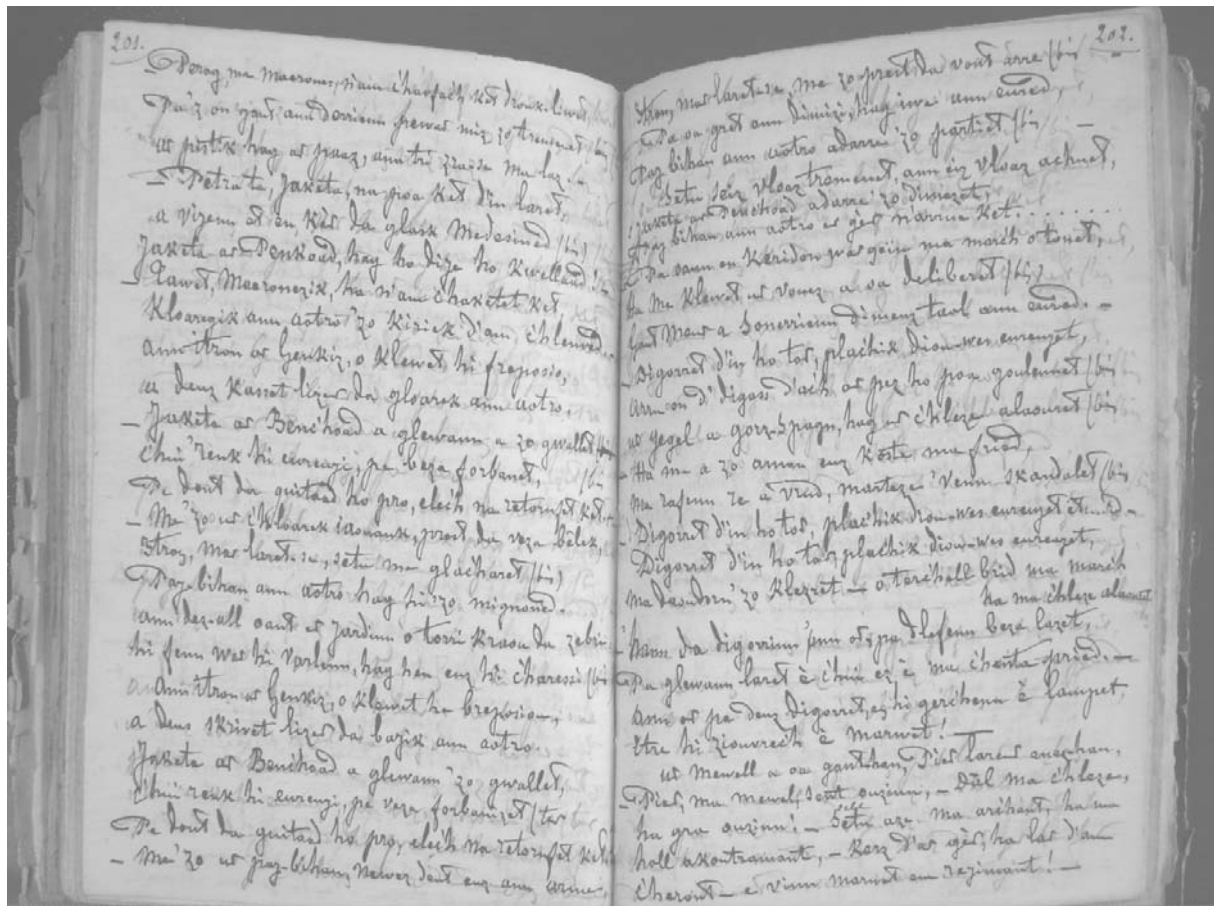 201.
— Perag, ma Maeronez, n'am c'harfac'h ket drouk-livet,
Pa'z on gant ann derrienn pewar miz zo tremenet (bis
ar pistik hag ar paaz, ann tri zra-se ma laz. —
— Petra ta, Jaketa, na poa ket d'in laret,
a vizenn et en kêr da glask Medesined (bis)
Jaketa ar Penkoad, hag ho dije ho kwellaad.
— Tawet, Maeronezik, ha n'am c'haketet ket,
Kloaregik ann aotro 'zo kiriek d'am c'hlenved. —
ann itron ar Gerkiz, o klewet hi freposio,
a deuz kasset lizer da gloarek ann aotro,
— Jaketa ar Benc'hoad a glewann a zo gwallet (bis
C'hui 'renk hi eureuji, pe beza forbanet, (bis
Pe dont da guitaad ho pro, elec'h na retornfet ket. —
— Me 'zo ur c'hloarek iaouank, prest da veza bêlek,
Itron, mar laret-se, setu me glac'haret (bis)
Paj-bihan ann aotro hag hi 'zo mignoned. —
ann dez-all oant er jardinn o torri kraou da zebri
hi fenn war hi varlenn, hag hen euz hi c'haressi (bis
Ann itron ar Gerkiz, o klewet he breposiou,
a deus skrivet lizer da bajik ann aotro.
Jaketa ar Benc'hoad a glewann 'zo gwallet,
C'hui renk hi eureuji, pe veza forbannet (ter
Pe dont da guitaad ho pro, elec'h na retornfet ket
— Me 'zo ur paj-bihan, newez deut euz ann arme,
202.
Itron, mar laret-se, me zo prest da vont arre (bis
— Pa oa gret ann dimizi, hag iwe ann eured,
Paj bihan ann aotro adarre 'zo partiet (bis —
Setu seiz vloaz tremenet, ann eiz vloaz achuet,
Jaketa ar Penc'hoad adarre 'zo dimezet,
Paj bihan ann aotro er gêr n'arriue ket. . . . . . . .
— Pa oann en Keridon war gein ma marc'h o tonet,
Ha me klewet ur vouez a oa deliberet (bis)
gant Mouez a Sonerrienn d'imeuz taol ann eured. —
— Digorret d'in ho tor, plac'hik diou-wes eureujet,
Arru on d'digass d'ac'h ar pez ho poa goulennet (bis
ur gegel a gorz-Spagn, hag ur c'hlezel alaouret (bis
— Ha me a zo aman euz koste ma fried,
Ma zafenn ze a vrud, marteze 'venn skandalet (bis
— Digorret d'in ho tor, plac'hik diou-wes eureujet &.....
Digorret d'in ho tor, plac'hik diou-wes eureujet,
Ma daouorn 'zo klezret — o terc'hell brid ma marc'h
ha ma c'hleze alaouret
— hann da digorrinn 'ann or, pa dlefenn beza lazet,
Pa glewann laret è c'hui ez è ma c'henta pried. —
ann or pe deuz digorret, ez hi gerc'henn è lampet,
Etre hi ziouvrec'h è marwet! —
ur mewell a oa gant-han, Pier larer anezhan,
— Pier, ma mewel, sent ouzinn, — Dâl ma c'hleze,
ha gra ouzinn! — Setu aze ma arc'hant, ha ma
holl akoutramant, — kerz d'ar gêr, ha lar d'am
c'heront — e vinn marwet em rejimant! —